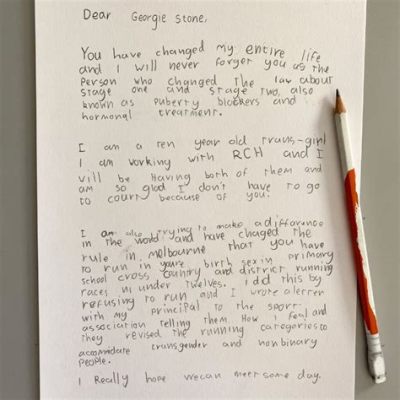 Dear Georgie Stone,
You have changed my entire life
and I will never forget you as the
person who changed the law about
stage one and stage two, also
known as puberty blockers and
hormonal treatment.
I am a ten year old trans-girl
I am working with RCH and I
will be Having both of them and
am so glad I don't have to go
to court because of you.
I am also trying to make a difference
in the world and have chaged the
rule in Melbourne that you have
to run in youre birth sex in primary
school cross country and district running
races in under twelves. I did this by
refusing to run and I wrote a letter
with my principal to the sport
association telling them How I feel and
they revised the running categories to
accomodate transgender and nonbinary
people.
I Really hope we can meet some day.